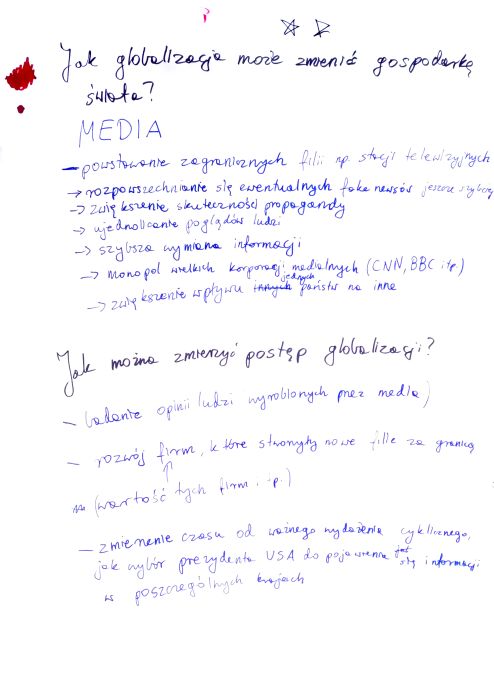 Jak globalizacja może zmienić gospodarkę
świata?
MEDIA
- powstawanie zagranicznych filii np. stacji telewizyjnych
-> rozpowszechnianie się ewentualnych fake newsów jeszcze szybciej
-> zwiększenie skuteczności propagandy
-> ujednolicanie poglądów ludzi
-> szybsza wymiana informacji
-> monopol wielkich korporacji medialnych (CNN, BBC itp.)
-> zwiększenie wpływu innych jednych państw na inne
Jak można zmierzyć postęp globalizacji?
- badanie opinii ludzi wyrobionych przez media)
- rozwój firm, które stworzyły nowe filie za granicą
(wartość tych firm itp.)
- zmierzenie czasu od ważnego wydarzenia cyklicznego,
jak wybór prezydenta USA do pojawienia się informacji
w poszczególnych krajach